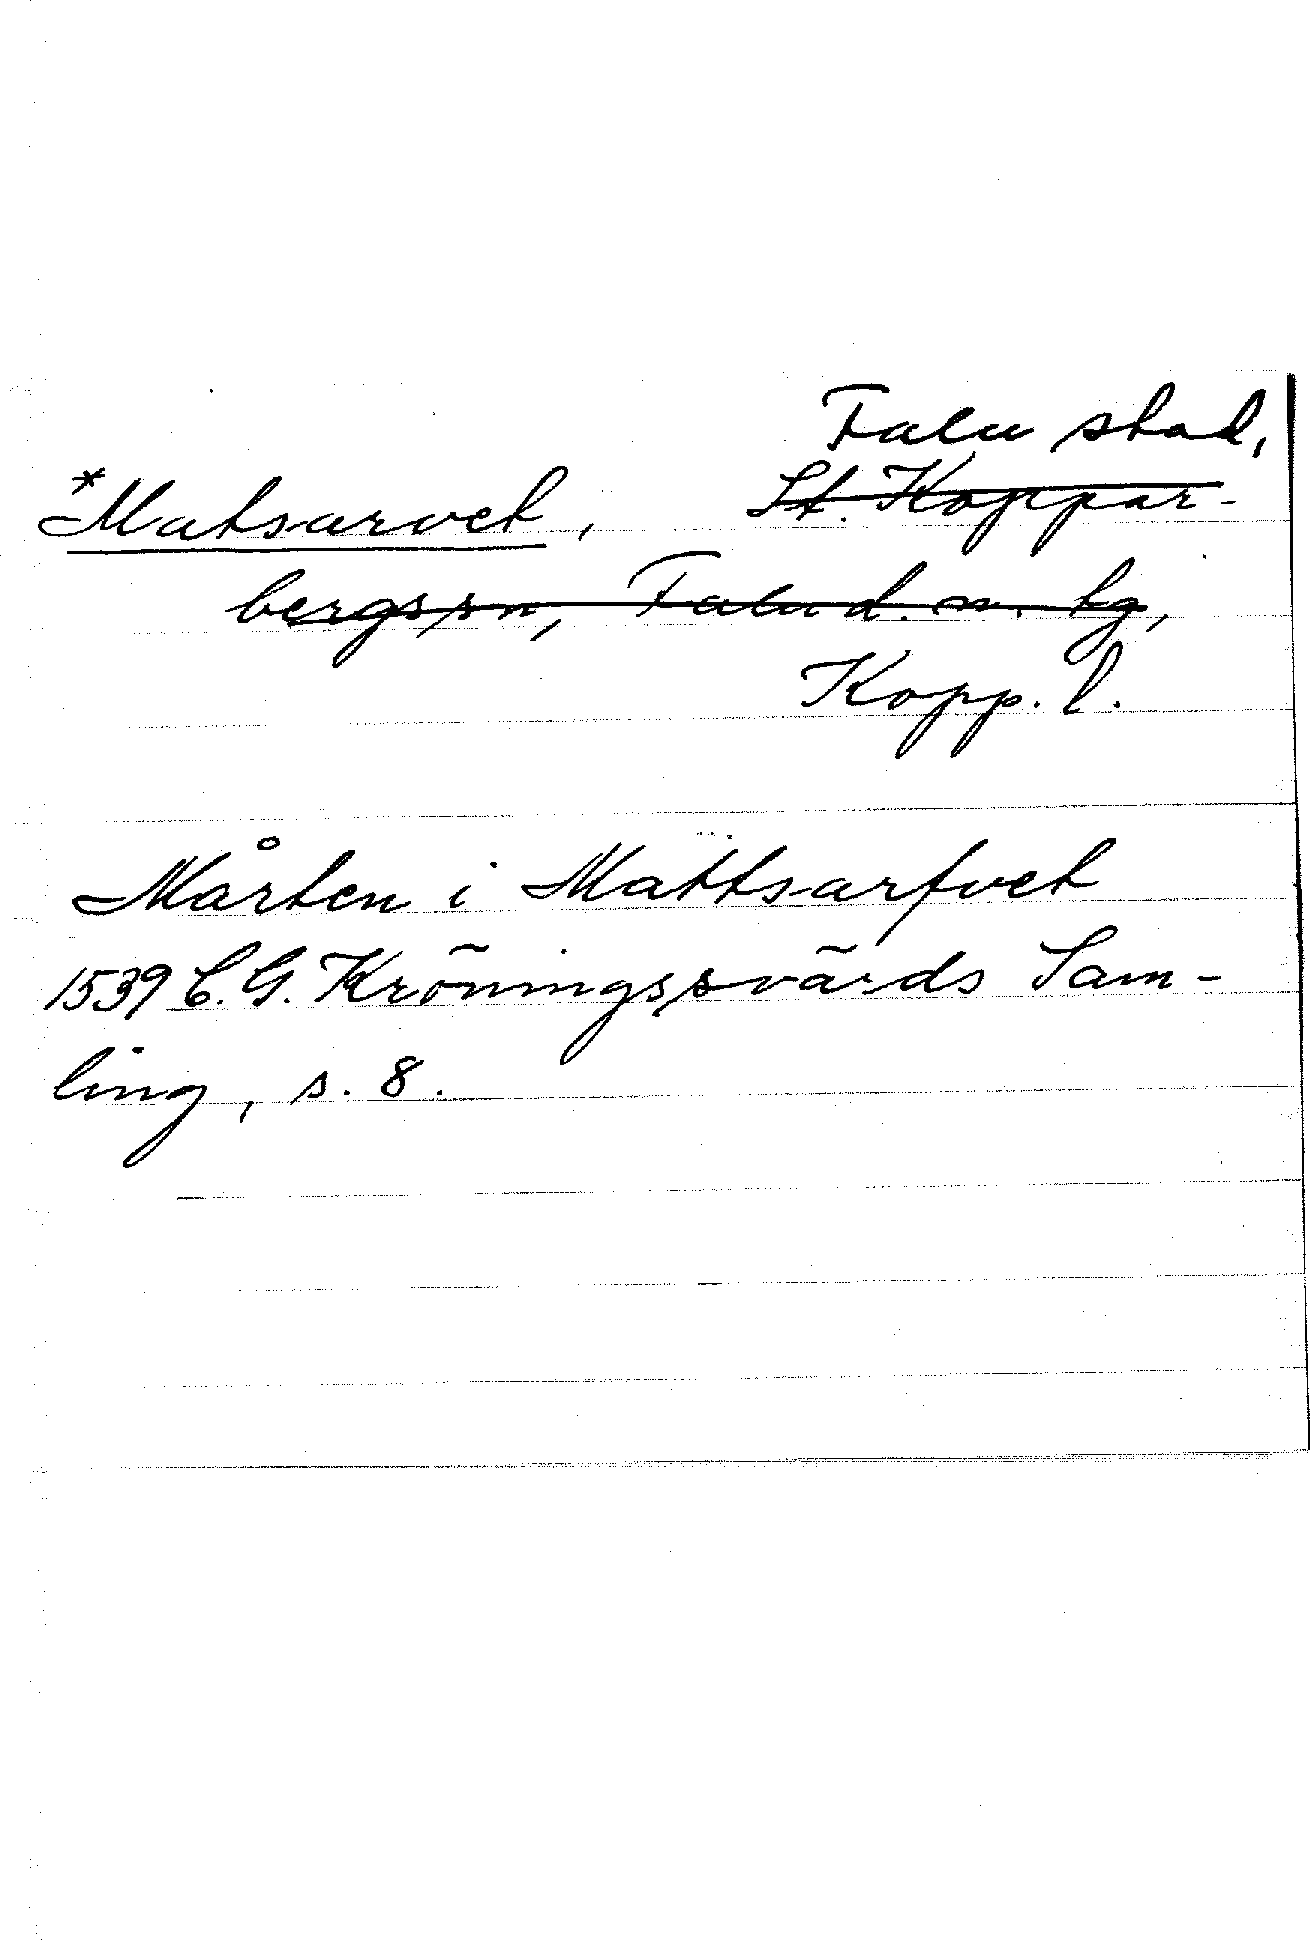 Falu stad,
*Matsarvet, St. Koppar-
bergs sn, Falu d. n. tg,
Kopp. l.
Mårten i Mattsarfvet
1539 C. G. Kröningssvärds Sam-
ling, s. 8.